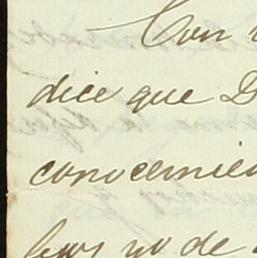 Con
dice que D
conocemien
yo de